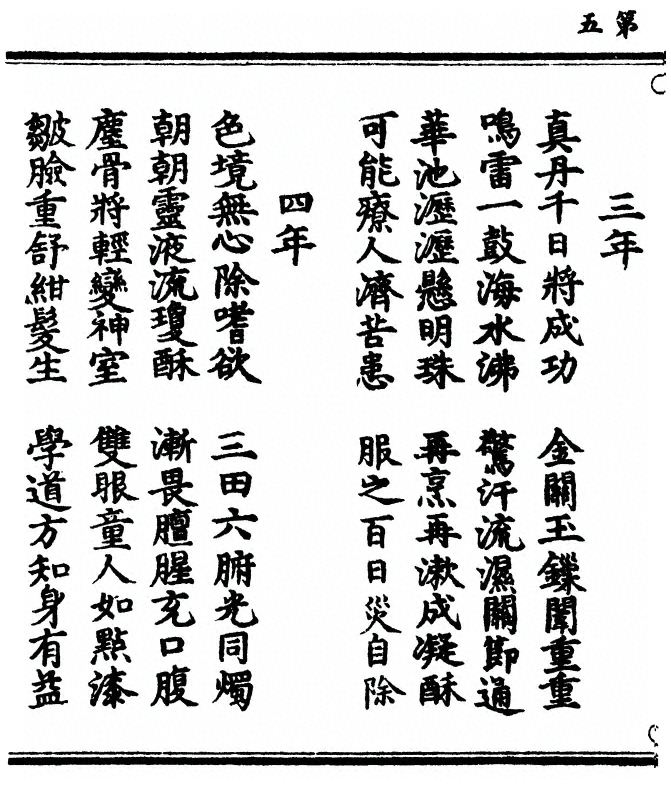 第五
三年
真丹千日將成功　金關玉鏁聞重重
鳴雷一鼓海水沸　驚汗流濕關節通
華池瀝瀝懸明珠　再烹再漱成凝酥
可能療人濟苦患　服之百日災自除
四年
色境無心除嗜欲　三田六腑光同燭
朝朝靈液流瓊酥　漸畏膻腥充口腹
塵骨將輕變神室　雙眼童人如點漆
皺臉重舒紺髮生　學道方知身有益